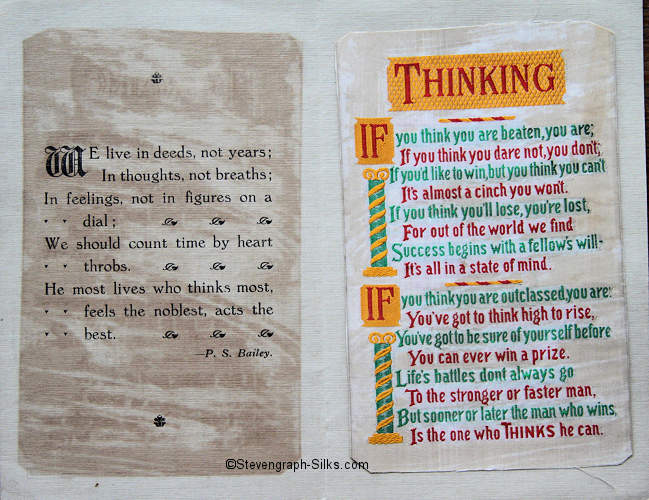 WE live in deeds, not years;
In thoughts, not breaths;
In feelings, not in figures on a
dial;
We should count time by heart
throbs.
He most lives who thinks most,
feels the noblest, acts the
best.
—P. S. Bailey.
THINKING
IF you think you are beaten, you are;
If you think you dare not, you don't;
If you'd like to win, but you think you can't
It's almost a cinch you won't.
If you think you'll lose, you're lost,
For out of the world we find
Success begins with a fellow's will-
It's all in a state of mind.
IF you think you are outclassed, you are:
You've got to think high to rise,
You've got to be sure of yourself before
You can ever win a prize.
Life's battles dont always go
To the stronger or faster man,
But sooner or later the man who wins,
Is the one who THINKS he can.
©Stevengraph-Silks.com